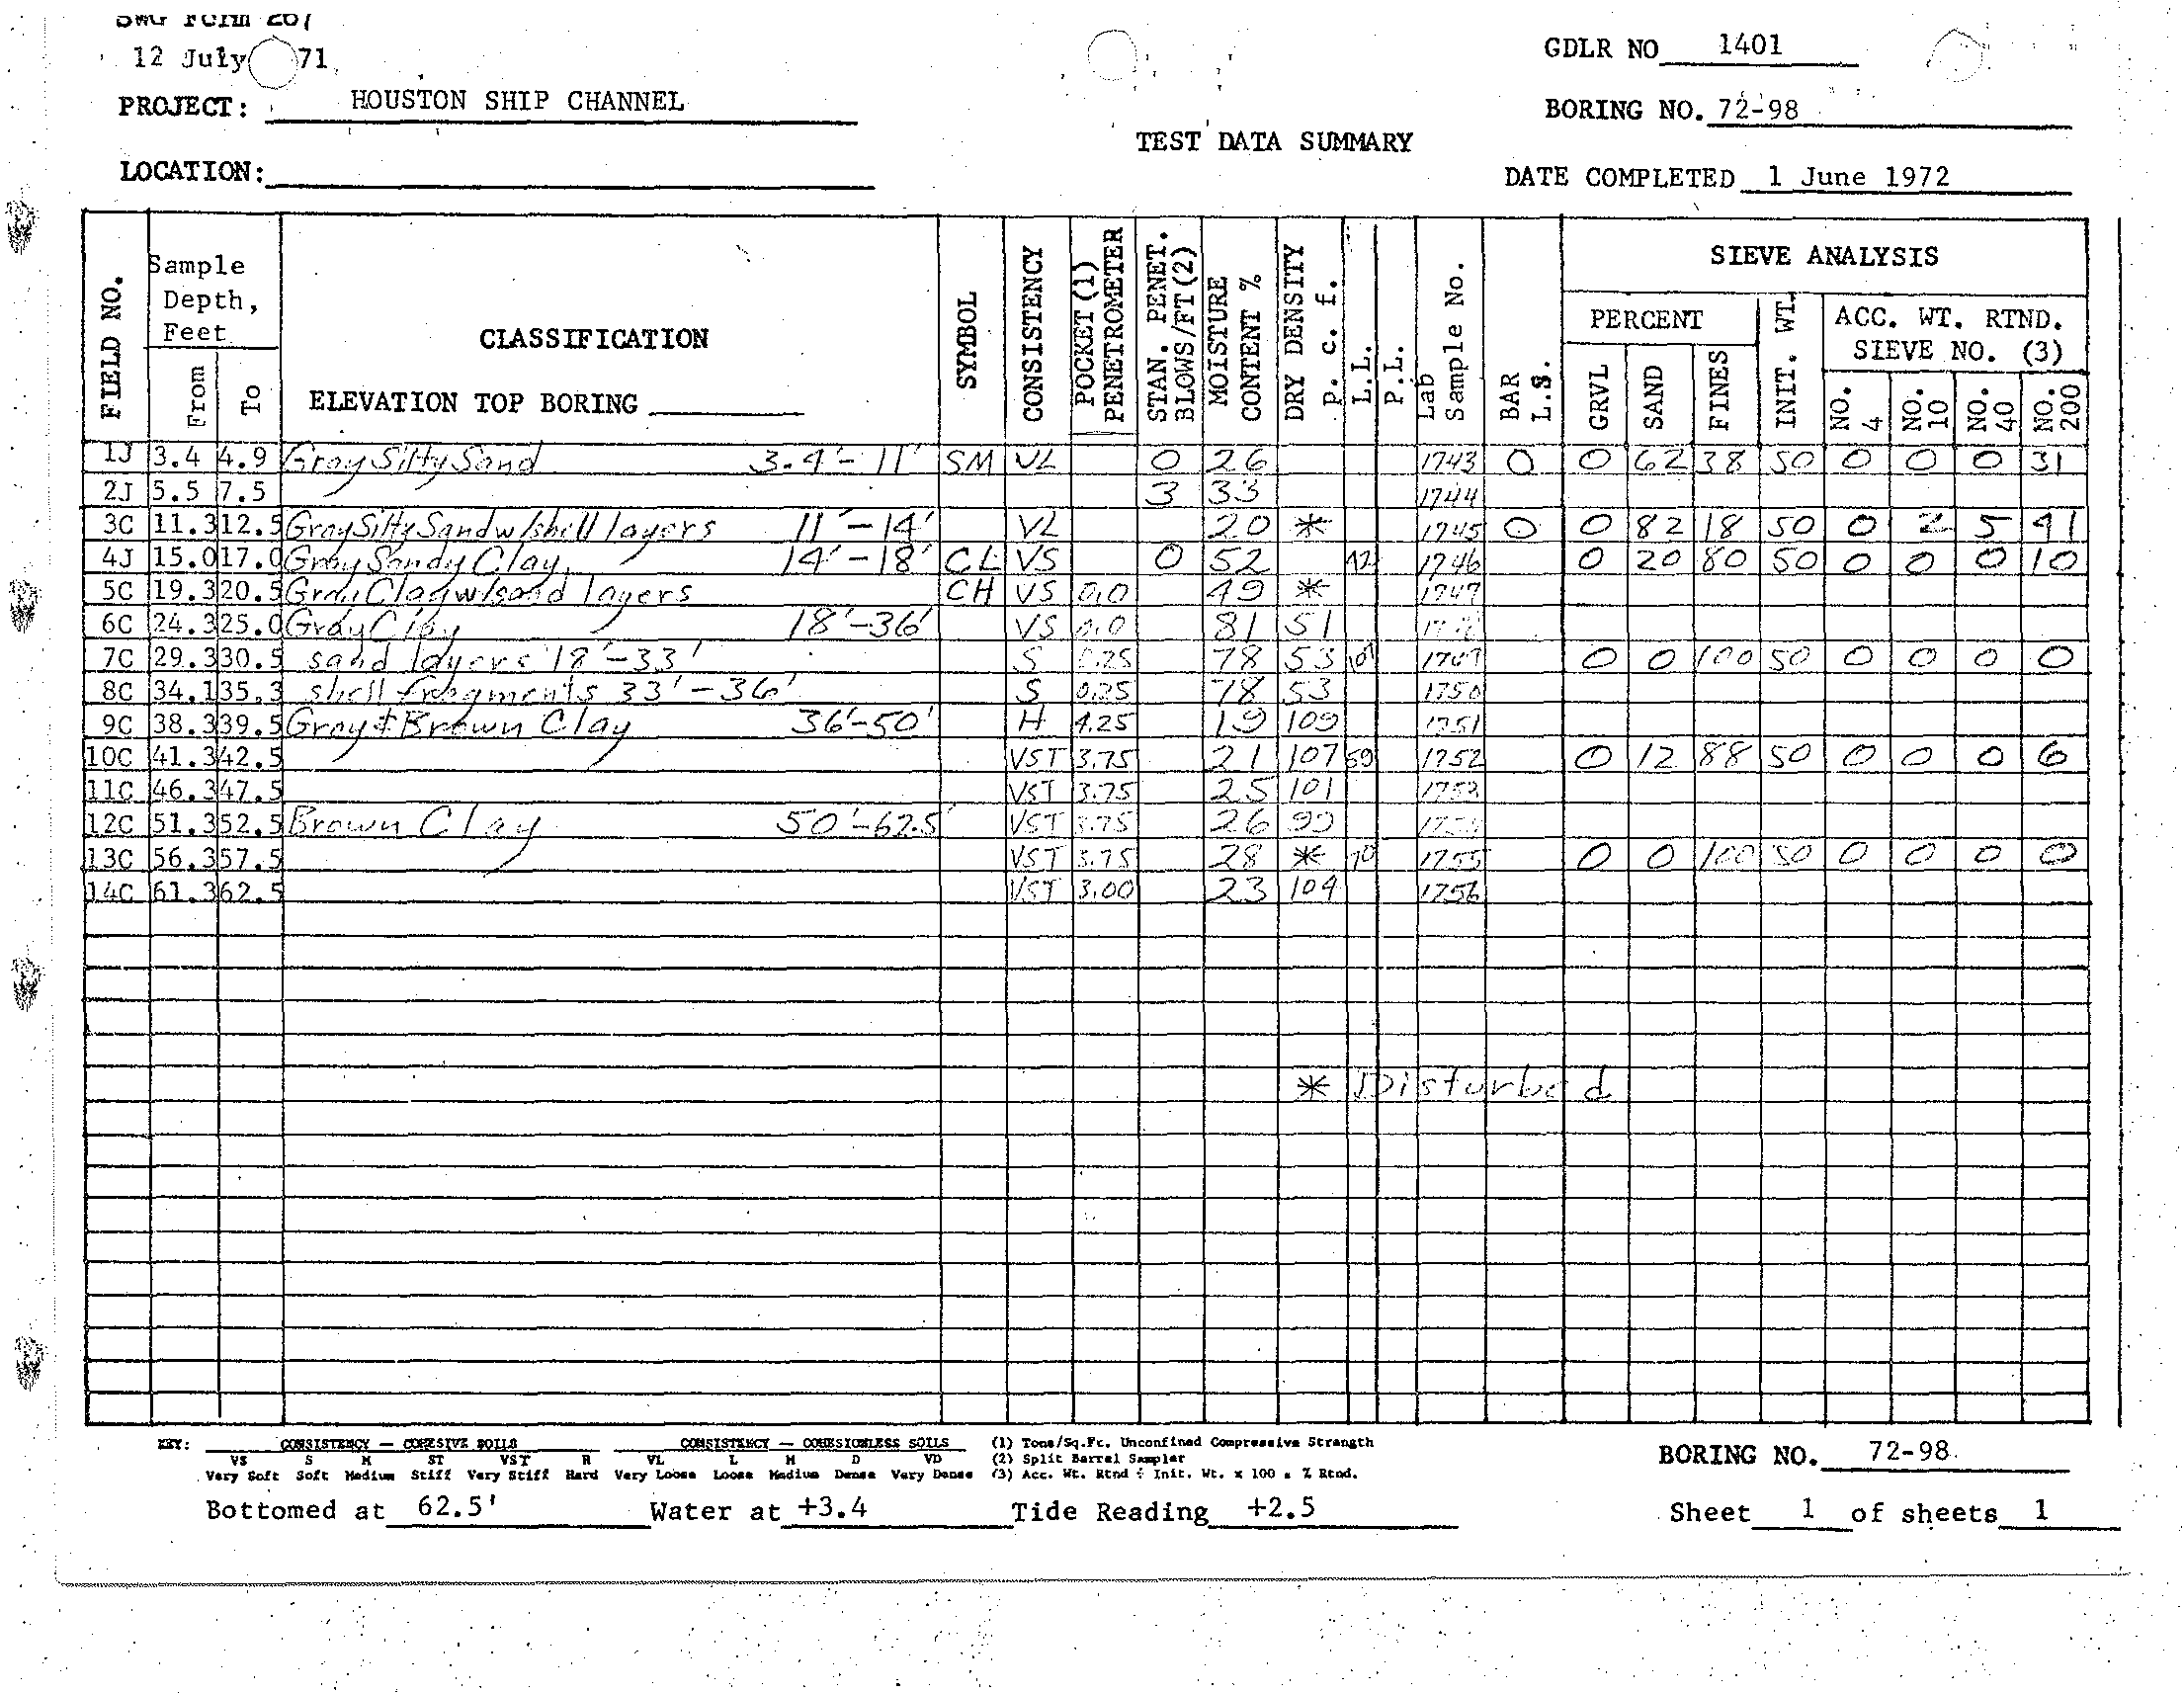 SWG Form 267
12 July 71
GDLR NO 1401
PROJECT: HOUSTON SHIP CHANNEL
BORING NO. 72-98
TEST DATA SUMMARY
LOCATION:
DATE COMPLETED 1 June 1972
FIELD NO.
Sample Depth, Feet
From
To
CLASSIFICATION
ELEVATION TOP BORING
SYMBOL
CONSISTENCY
POCKET (1) PENETROMETER
STAN. PENET. BLOWS/FT(2)
MOISTURE CONTENT %
DRY DENSITY P. c. f.
L.L.
P.L.
Lab Sample No.
BAR L.S.
SIEVE ANALYSIS
PERCENT
GRVL
SAND
FINES
INIT. WT.
ACC. WT. RTND. SIEVE NO. (3)
NO. 4
NO. 10
NO. 40
NO. 200
1J 3.4 4.9 Gray Silty Sand 3.4'-11' SM VL 0 26 1743 0 0 62 38 50 0 0 0 31
2J 5.5 7.5 3 33 1744
3C 11.3 12.5 Gray Silty Sand w/shell layers 11'-14' VL 20 * 1745 0 0 82 18 50 0 2 5 41
4J 15.0 17.0 Gray Sandy Clay 14'-18' CL VS 0 52 42 1746 0 20 80 50 0 0 0 10
5C 19.3 20.5 Gray Clay w/sand layers CH VS 0.0 49 * 1747
6C 24.3 25.0 Gray Clay 18'-36' VS 0.0 81 51
7C 29.3 30.5 sand layers 18'-33' S 0.25 78 53 0 0 100 50 0 0 0 0
8C 34.1 35.3 shell fragments 33'-36' S 0.25 78 53 1750
9C 38.3 39.5 Gray & Brown Clay 36'-50' H 4.25 19 109 1751
10C 41.3 42.5 VST 3.75 21 107 59 1752 0 12 88 50 0 0 0 6
11C 46.3 47.5 VST 3.75 25 101 1753
12C 51.3 52.5 Brown Clay 50'-62.5' VST 3.75 26 99
13C 56.3 57.5 VST 3.75 28 * 70 1755 0 0 100 50 0 0 0 0
14C 61.3 62.5 VST 3.00 23 104 1756
* Disturbed
KEY: CONSISTENCY — COHESIVE SOILS CONSISTENCY — COHESIONLESS SOILS (1) Tons/Sq.Ft. Unconfined Compressive Strength
VS S M ST VST H VL L M D VD (2) Split Barrel Sampler
Very Soft Soft Medium Stiff Very Stiff Hard Very Loose Loose Medium Dense Very Dense (3) Acc. Wt. Rtnd ÷ Init. Wt. x 100 = % Rtnd.
BORING NO. 72-98
Bottomed at 62.5' Water at +3.4 Tide Reading +2.5 Sheet 1 of sheets 1